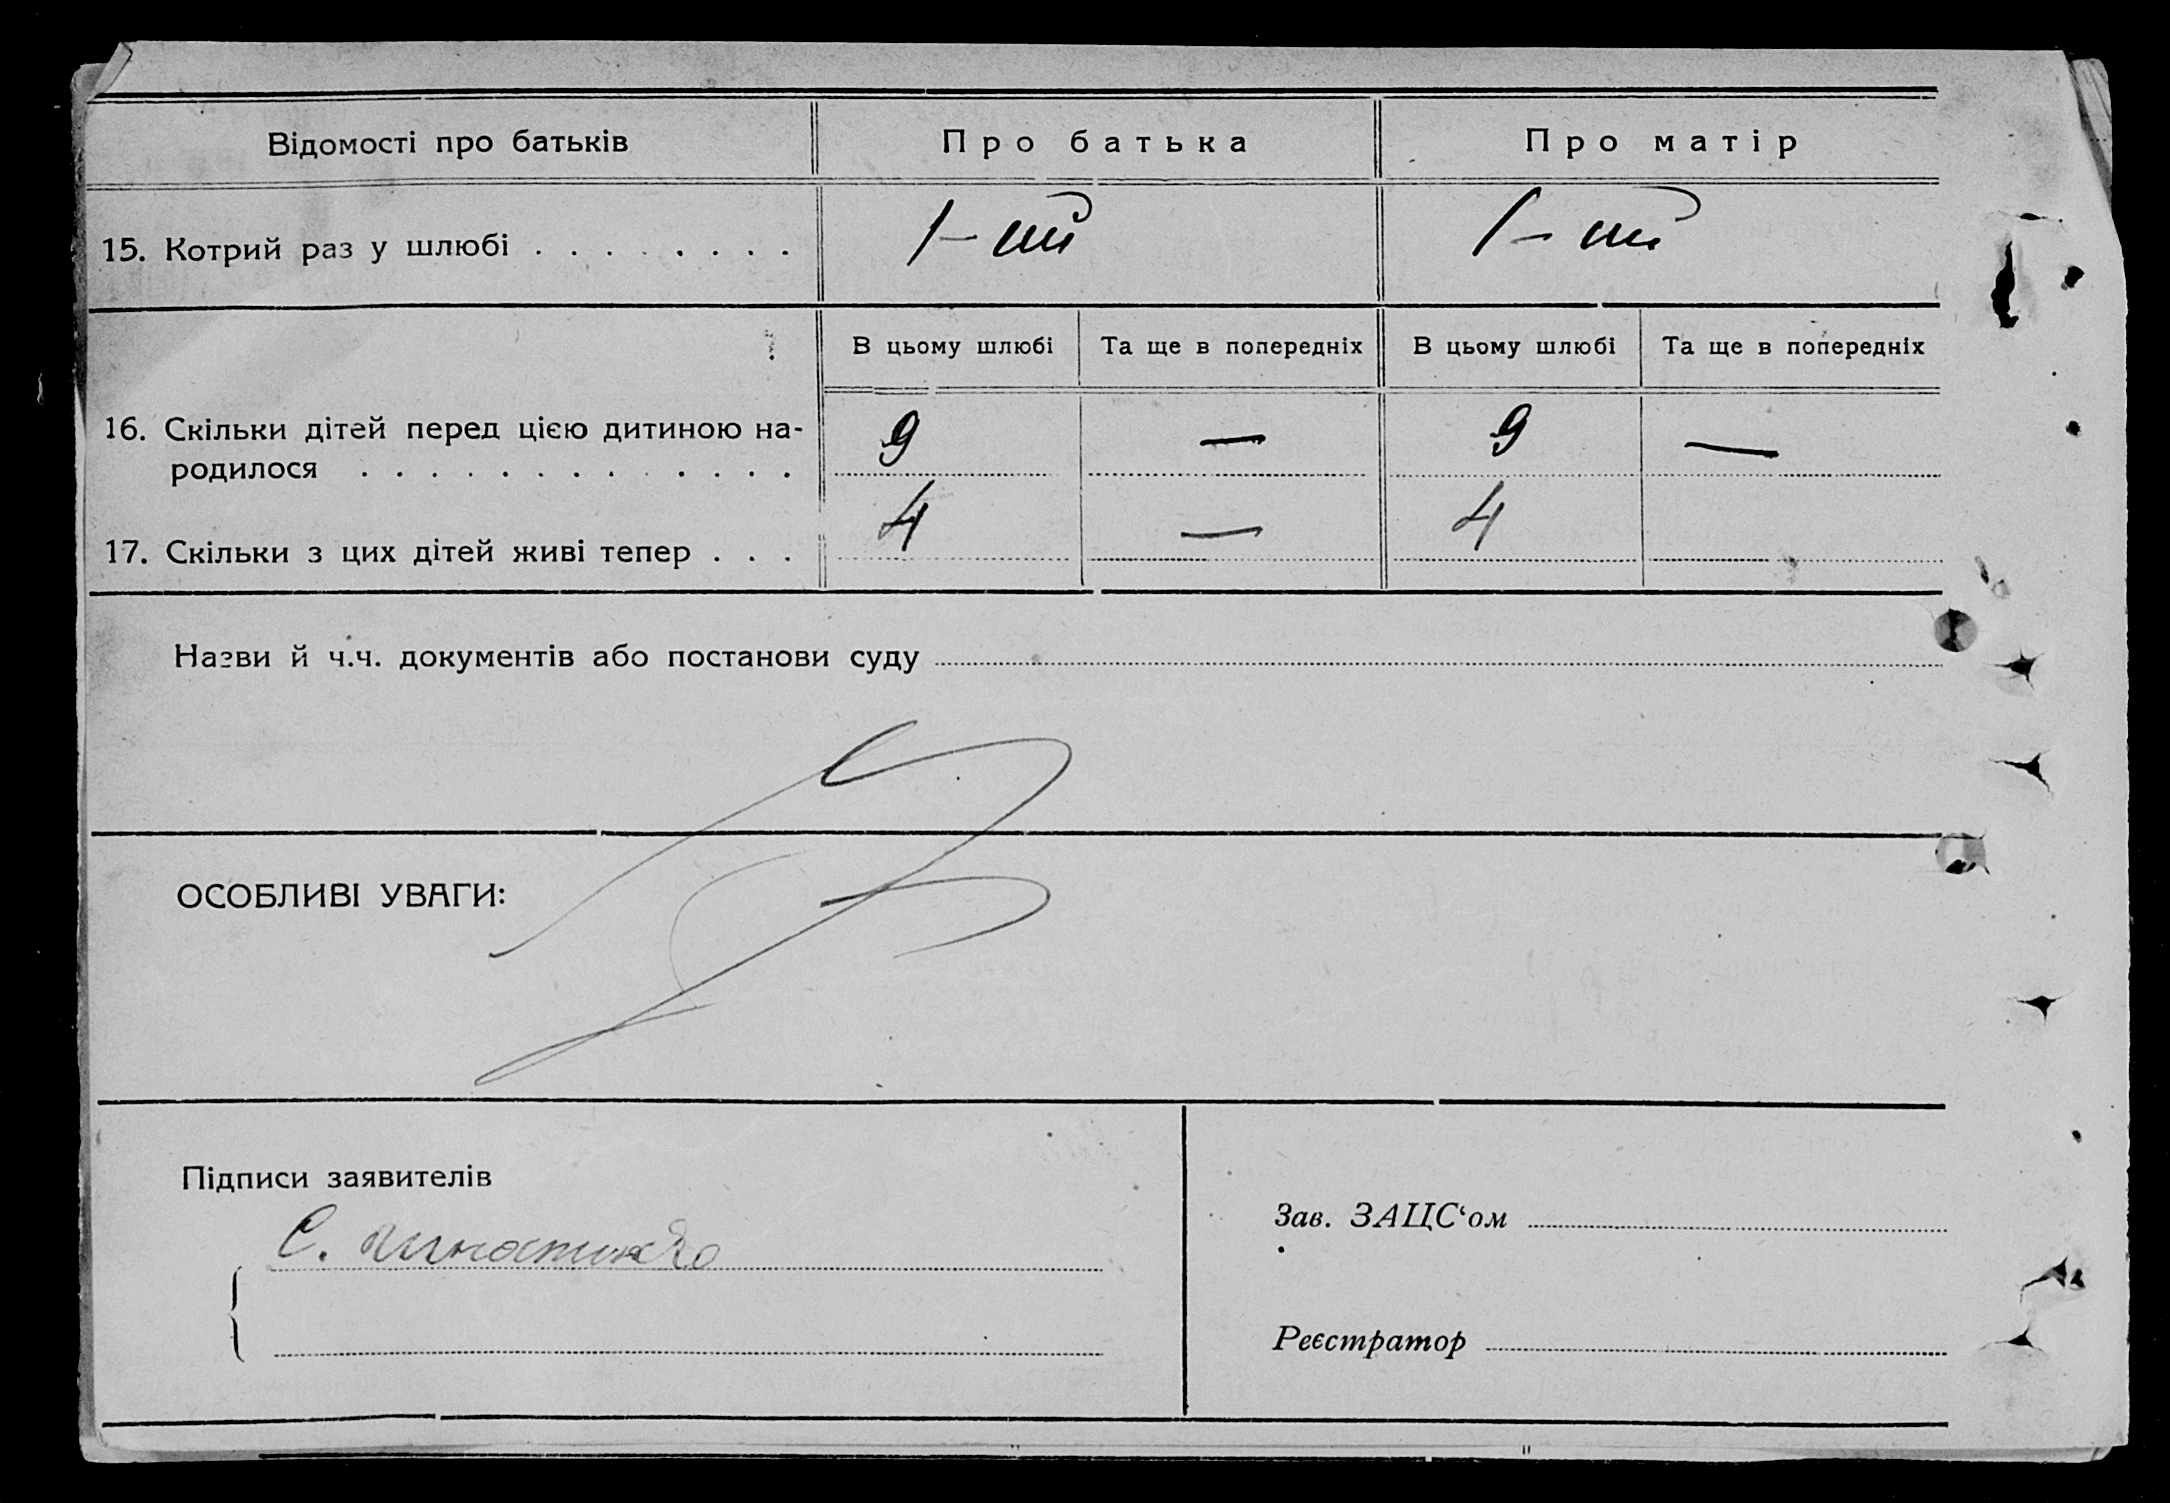 Відомості про батьків Про батька Про матір
15. Котрий раз у шлюбі . . . . . . . . 1-ий 1-ий
В цьому шлюбі Та ще в попередніх В цьому шлюбі Та ще в попередніх
16. Скільки дітей перед цією дитиною на-
родилося . . . . . . . . . . . . . 9 — 9 —
17. Скільки з цих дітей живі тепер . . . 4 — 4
Назви й ч.ч. документів або постанови суду
ОСОБЛИВІ УВАГИ:
Підписи заявителів
С.
Зав. ЗАЦС‘ом
Реєстратор